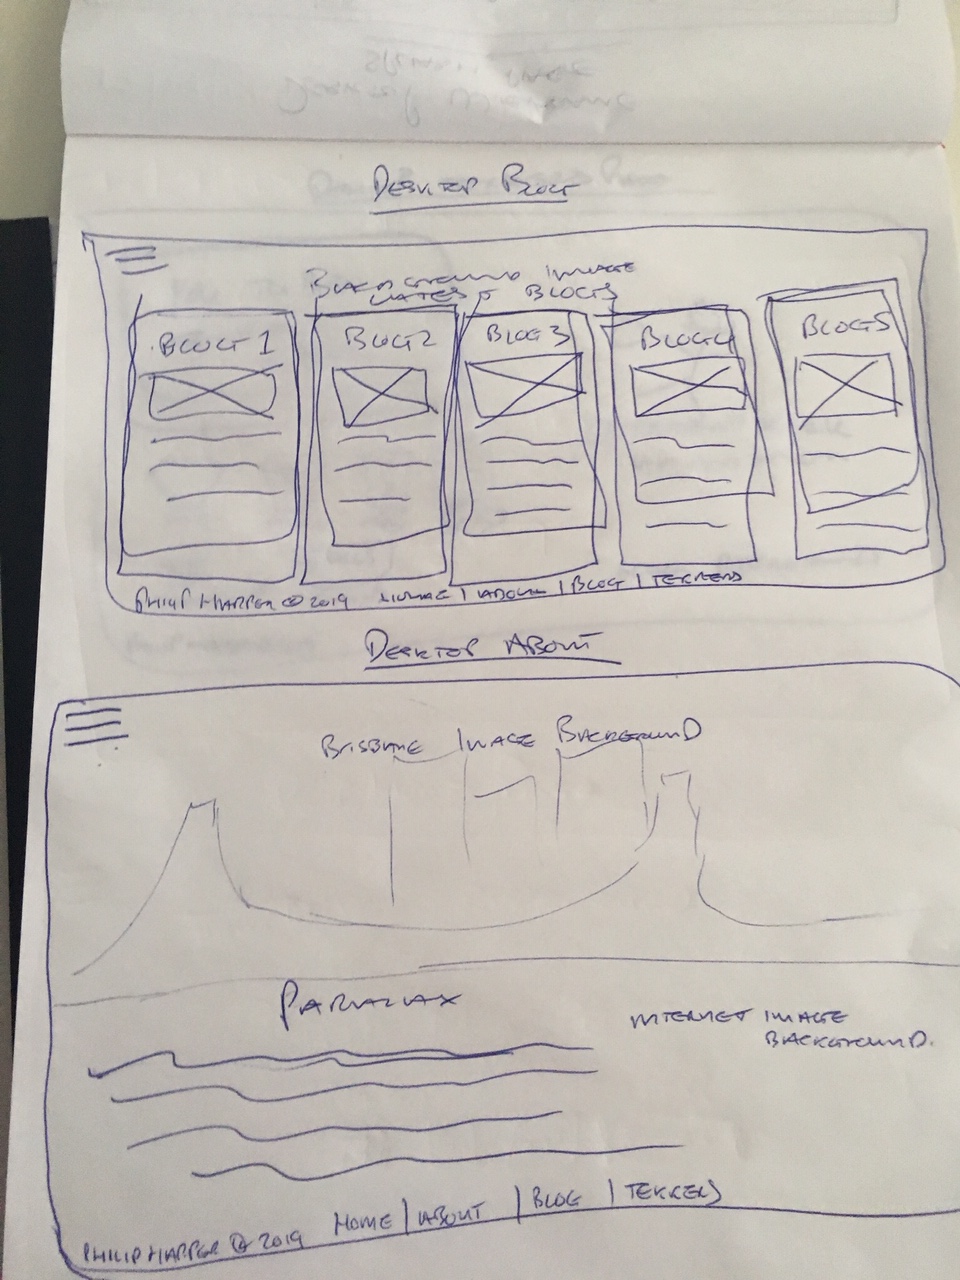 DESKTOP BLOG
BACKGROUND IMAGE
LATEST BLOGS
BLOG 1 BLOG2 BLOG3 BLOG4 BLOG5
PHILIP HARPER © 2019 HOME | ABOUT | BLOG | TEKKERS
DESKTOP ABOUT
BRISBANE IMAGE BACKGROUND
PARALLAX
INTERNET IMAGE
BACKGROUND.
HOME | ABOUT | BLOG | TEKKERS
PHILIP HARPER © 2019